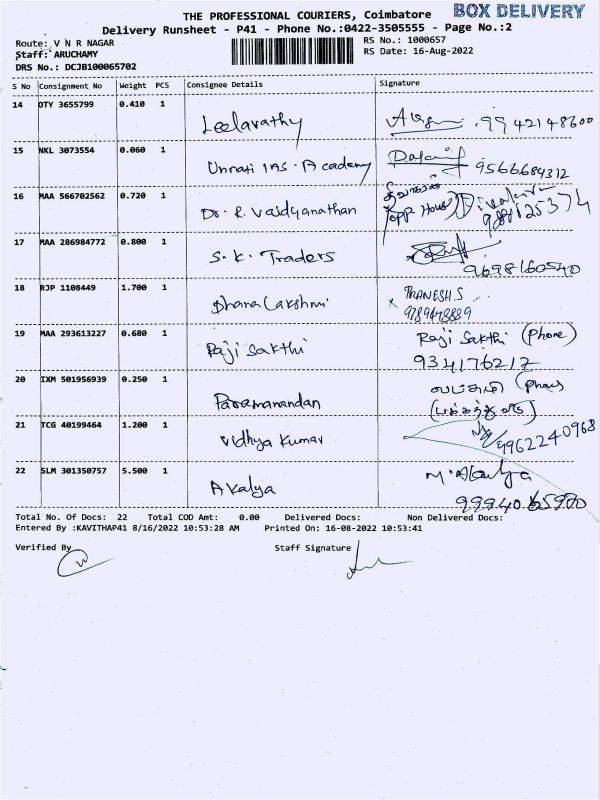 THE PROFESSIONAL COURIERS, Coimbatore BOX DELIVERY
Delivery Runsheet - P41 - Phone No.:0422-3505555 - Page No.:2
Route: V N R NAGAR RS No.: 1000657
Staff: ARUCHAMY RS Date: 16-Aug-2022
DRS No.: DCJB100065702
S No Consignment No Weight PCS Consignee Details Signature
14 OTY 3655799 0.410 1
Leelavathy 9942148600
15 NKL 3073554 0.060 1
Unnati IAS. Academy 9566684312
16 MAA 566702562 0.720 1
Dr. R. Vaidyanathan (opp House)
17 MAA 286984772 0.800 1
S. K. Traders
9698160540
18 RJP 1108449 1.700 1
Dhana Lakshmi PRANESH S
19 MAA 293613227 0.680 1 Raji Sakthi (Phone)
Raji Sakthi 934176217
20 IXM 501956939 0.250 1
Paramanandan
21 TCG 40199464 1.200 1
Vidhya Kumar 9962240968
22 SLM 301350757 5.500 1
Akalya
Total No. Of Docs: 22 Total COD Amt: 0.00 Delivered Docs: Non Delivered Docs:
Entered By :KAVITHAP41 8/16/2022 10:53:28 AM Printed On: 16-08-2022 10:53:41
Verified By Staff Signature